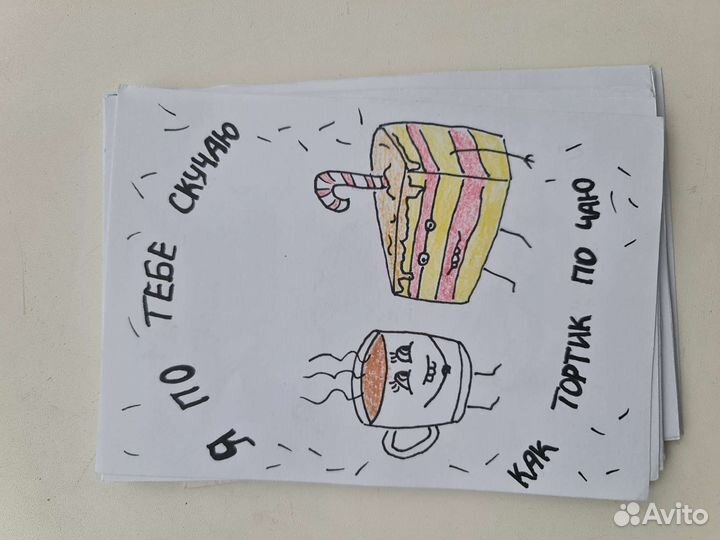 Я ПО ТЕБЕ СКУЧАЮ
КАК ТОРТИК ПО ЧАЮ
Avito